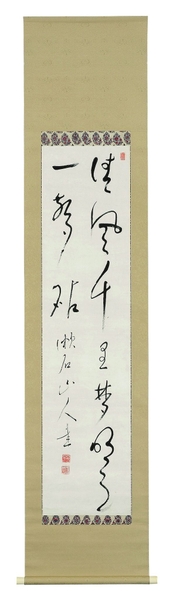 清風千里夢明月
一聲砧
漱石山人書